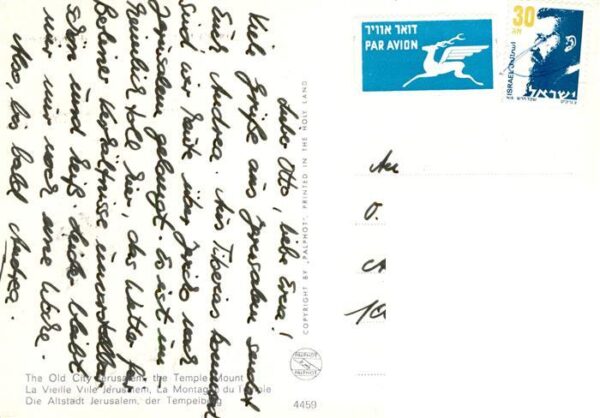 Lieber Otto, liebe Erna!
Viele Grüße aus Jerusalem sendet
Euch Andrea. Aus Tiberias kommend
sind wir heute über Jericho nach
Jerusalem gelangt. Es ist im
toll hier, das Wetter für
Berliner Verhältnisse unvorstellbar
schön und heiß. Leider bleibt
mir nur noch eine Woche.
Also, bis bald Andrea.
COPYRIGHT BY „PALPHOT" PRINTED IN THE HOLY LAND
PALPHOT
The Old City Jerusalem, the Temple Mount
La Vieille Ville Jérusalem, La Montagne du Temple
Die Altstadt Jerusalem, der Tempelberg
4459
דואר אוויר
PAR AVION
30
ISRAEL
ישראל
An
O.